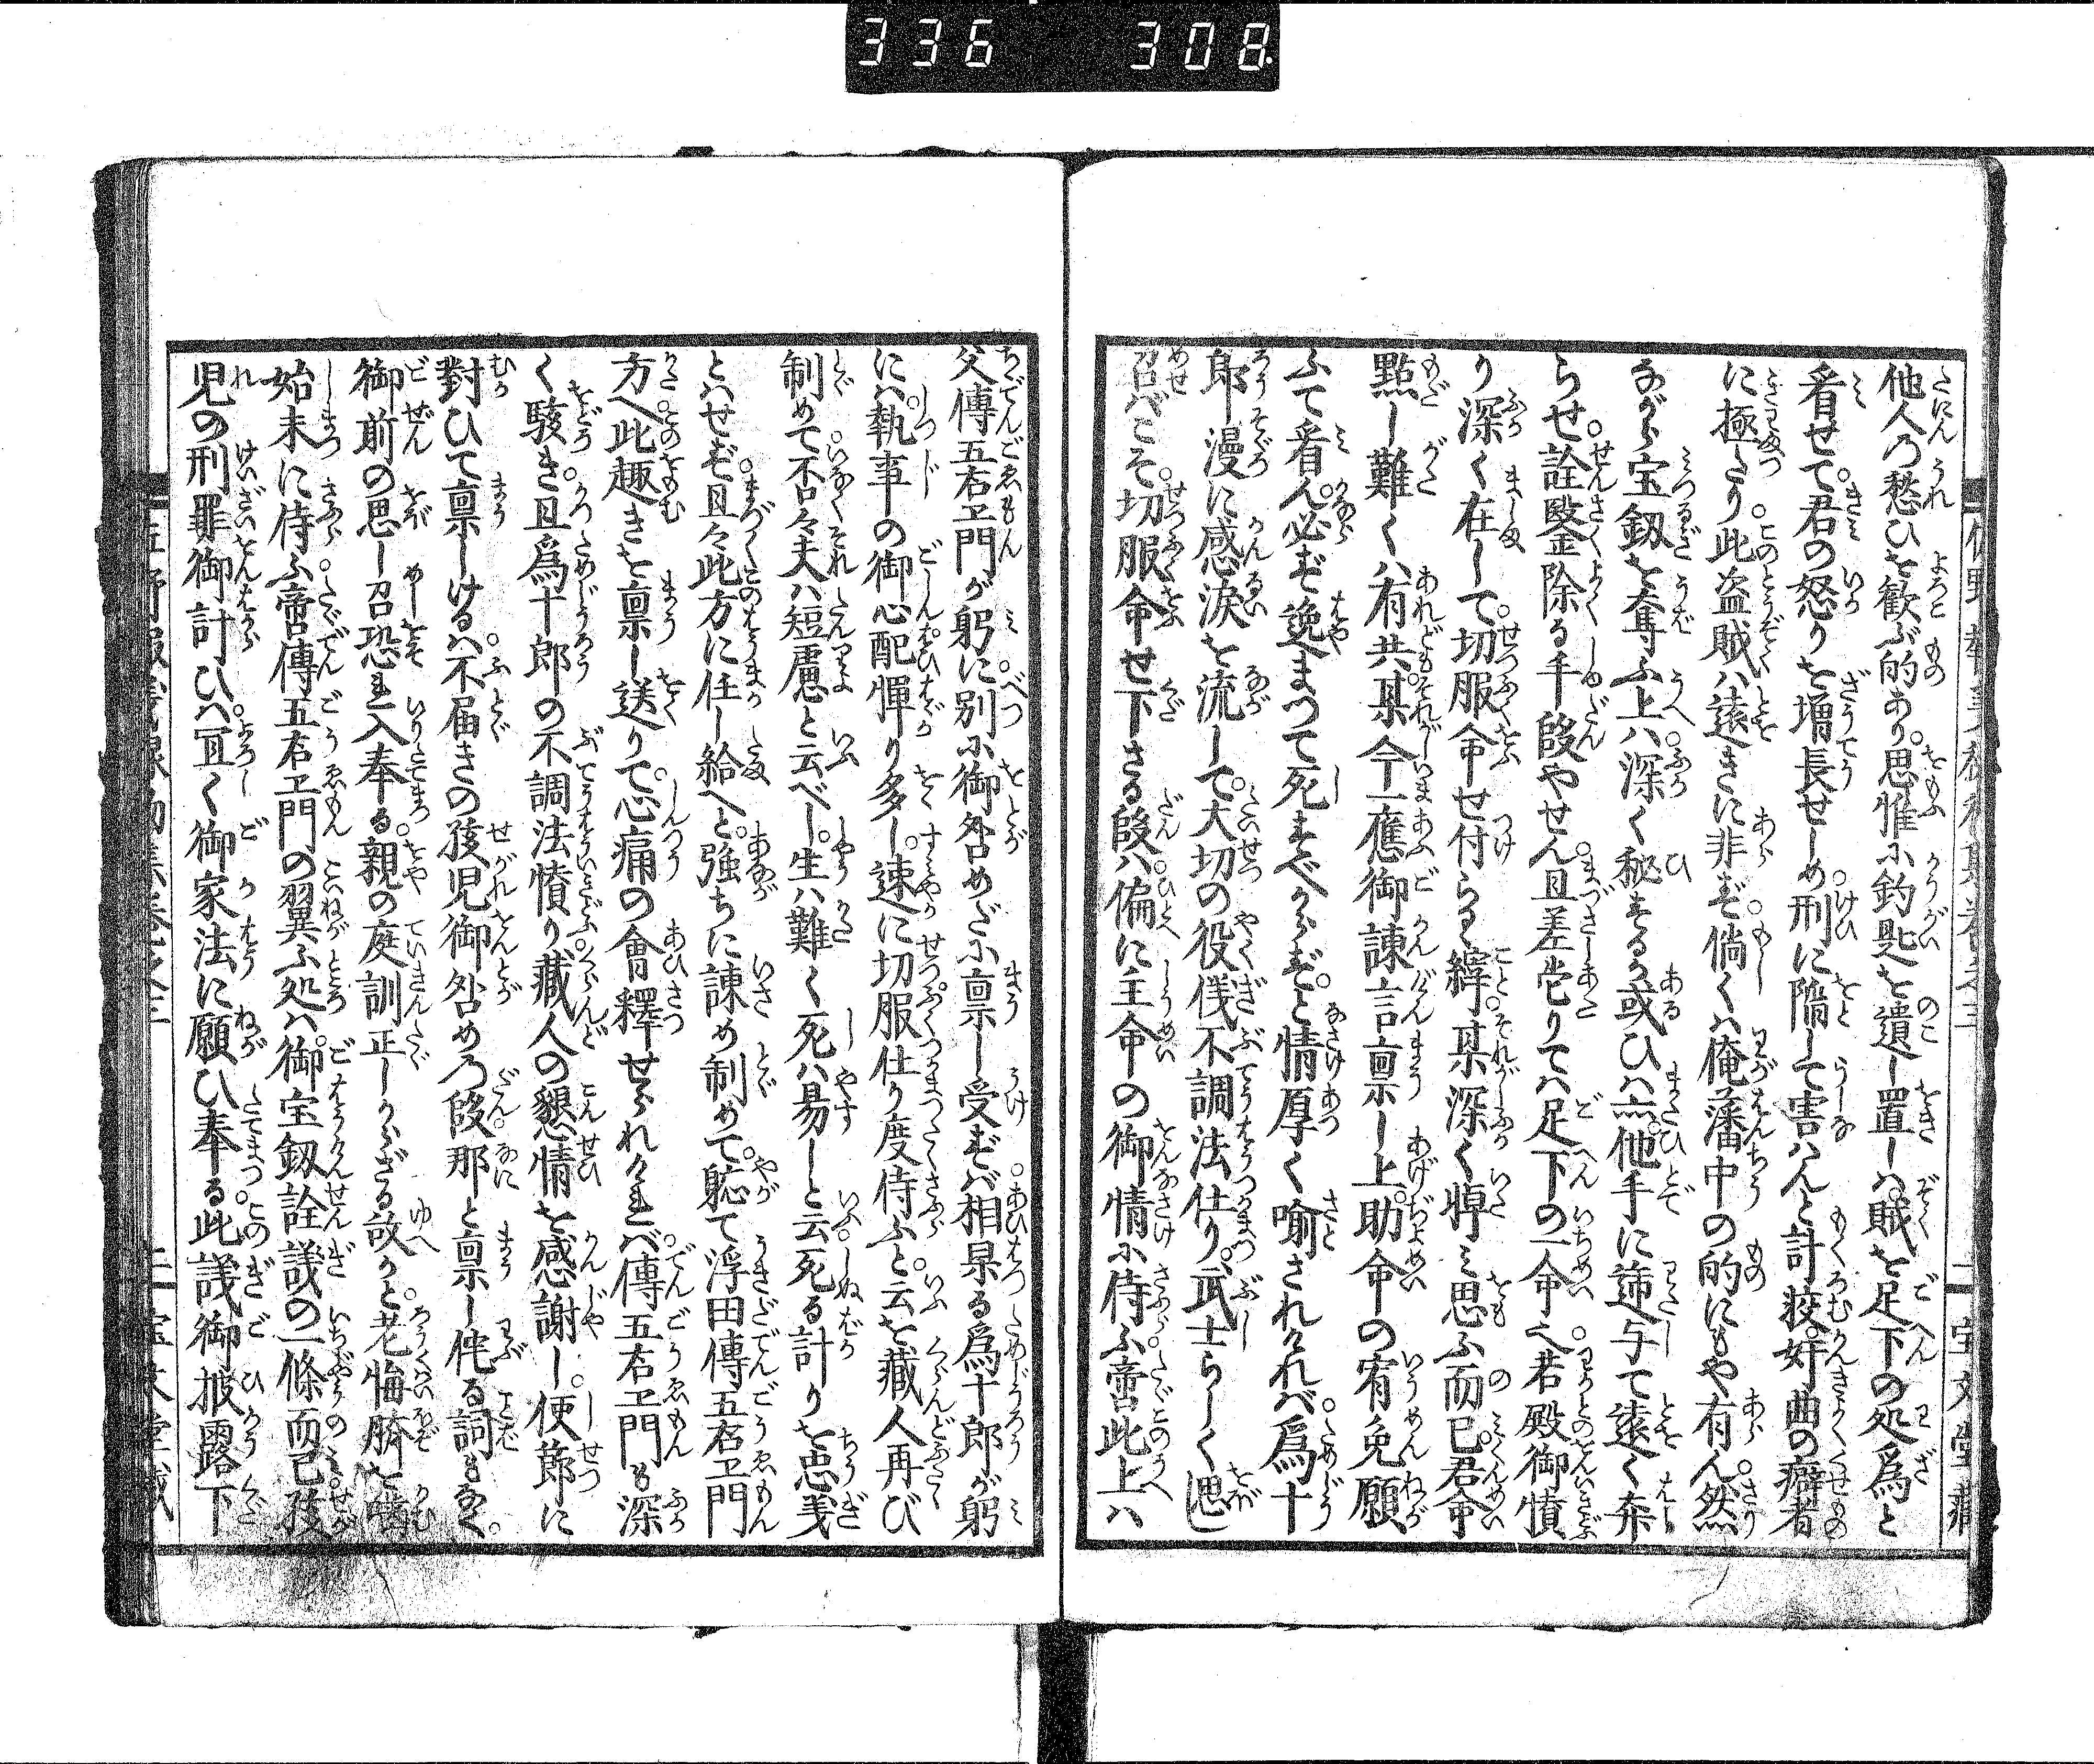 336 308
他人の愁ひを歓ぶ的あり。思惟に釣匙を遺し置しハ賊を足下の処爲と
看せて。君の怒りを増長せしめ。刑に陥して害ハんと計較。奸曲の癖者
に極たり。此盗賊ハ遠きに非ず。倘くハ俺藩中の的にもや有ん。然
ながら宝釼を奪ふ上ハ。深く秘するか或ひハ亦。他手に逓与て遠く奔
らせ。詮鑿除る手段やせん。且差当りてハ足下の一命。若殿御憤
り深く在して。切服命せ付らるゝ縡。某深く悼ミ思ふ而已。君命
黙し難くハ有共。某今一應御諫言稟し上。助命の宥免願
ふて看ん。必ず逸まつて死すべからず。と情厚く喩されけれバ。爲十
郎漫に感涙を流して。大切の役儀不調法仕り。武士らしく思
召バこそ。切服命せ下さる段ハ。偏に主命の御情に侍ふ。啻此上ハ
父傳五右エ門が躬に。別に御咎めだに稟し受ずバ。相果る爲十郎が躬
にハ。執事の御心配憚り多し。速に切服仕り度侍ふ。と云を藏人再び
制めて。否々夫ハ短慮と云べし。生ハ難く死ハ易しと云。死る計りを忠義
とハせず。且々此方に任し給へと。強ちに諫め制めて。軈て浮田傳五右エ門
方へ。此趣きを稟し送りて。心痛の會釋せられけれバ。傳五右エ門も深
く駭き。且爲十郎の不調法憤り。藏人の懇情を感謝し。使節に
對ひて稟しけるハ。不届きの孩児御咎めの段。那と稟し侘る詞もなく。
御前の思し召恐れ入奉る。親の庭訓正しからざる故かと。老悔臍を噛
始末に侍ふ。啻傳五右エ門の翼ふ処ハ。御宝釼詮議の一條而已。孩
児の刑罪御計ひハ。宜く御家法に願ひ奉る。此議御披露下